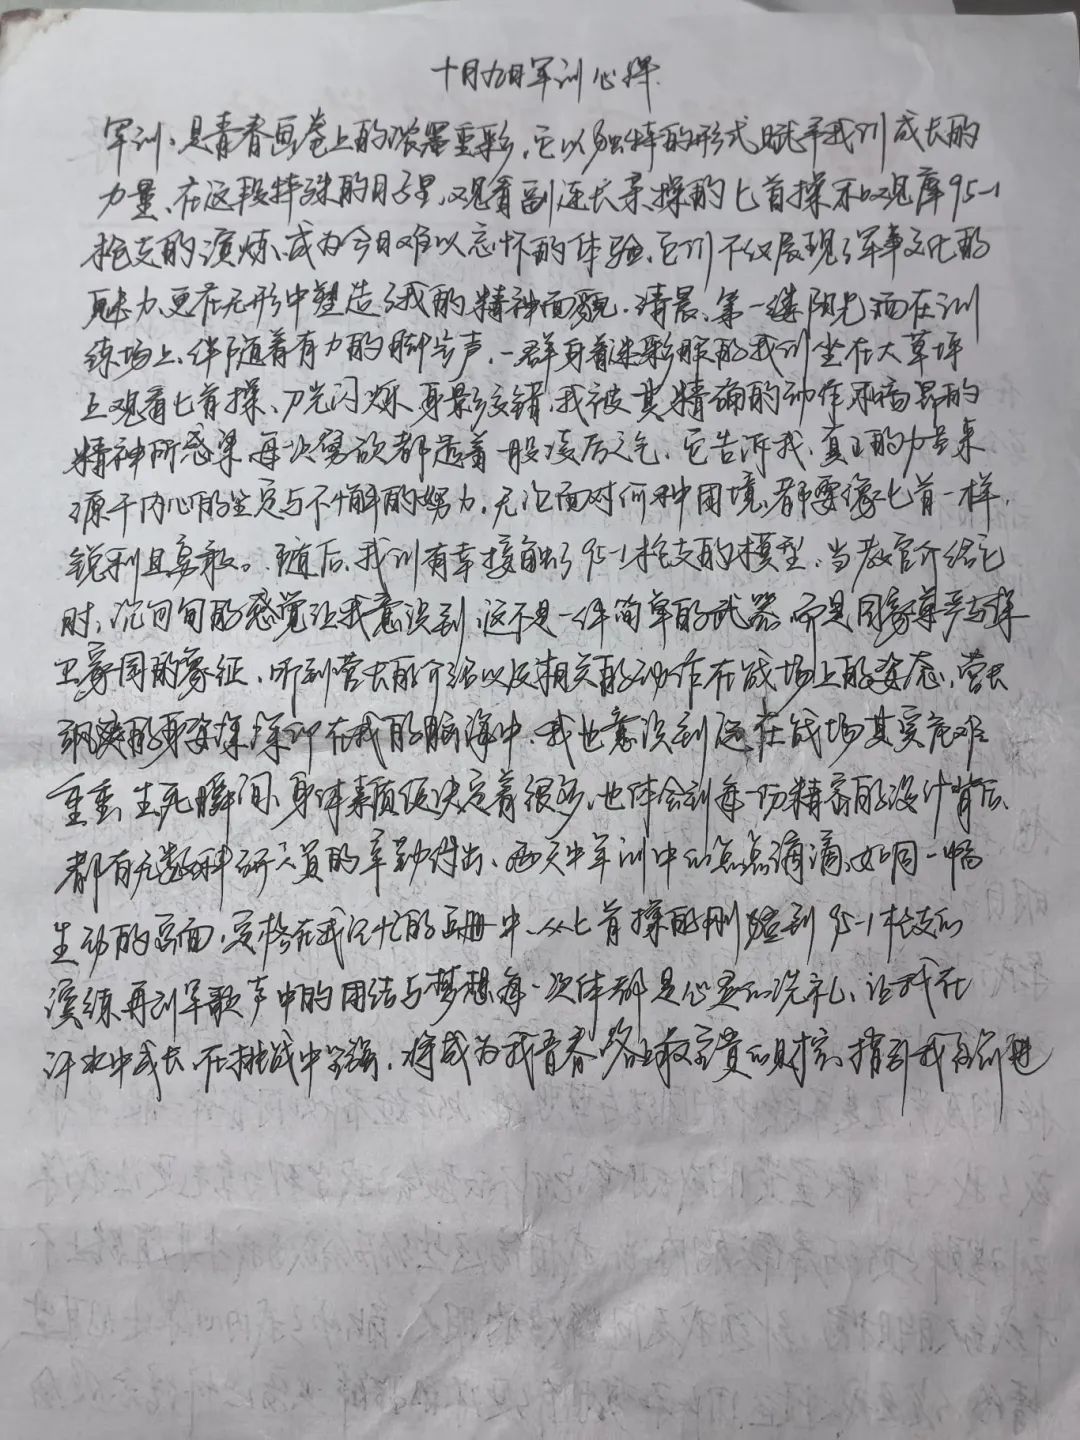 十月九日军训心得
军训，是青春画卷上的浓墨重彩，它以独特的形式赋予我们成长的
力量、在这段特殊的日子里，观看副连长亲操的匕首操和观摩95-1
枪支的演练、成为今日难以忘怀的体验，它们不仅展现了军事文化的
魅力，更在无形中塑造了我的精神面貌。清晨、第一缕阳光洒在训
练场上、伴随着有力的脚步声，一群身着迷彩服的我们坐在大草坪
上观看匕首操、刀光闪烁、身影交错，我被其精确的动作和高昂的
精神所感染，每次劈砍都透着一股凌厉之气，它告诉我，真正的力量来
源于内心的坚定与不懈的努力，无论面对何种困境、都要像匕首一样，
锐利且勇敢。随后、我们有幸接触了95-1枪支的模型，当教官介绍它
时，沉甸甸的感觉让我意识到，这不是一件简单的武器，而是国家尊严与保
卫家国的象征，听到营长的介绍以及相关的动作在战场上的姿态，营长
飒爽的身姿深深印在我的脑海中、我也意识到 在战场其实危难
重重，生死瞬间、身体素质便决定着很多，也体会到每一份精密的设计背后、
都有无数科研人员的辛勤付出、 军训中的点点滴滴，如同一幅
生动的画面，定格在我记忆的画册中、从匕首操的刚 到95-1枪支的
演练，再到军歌声中的团结与梦想，每一次体 都是心灵的洗礼、让我在
汗水中成长、在挑战中 强，将成为我青春路上最宝贵的财富、指引我